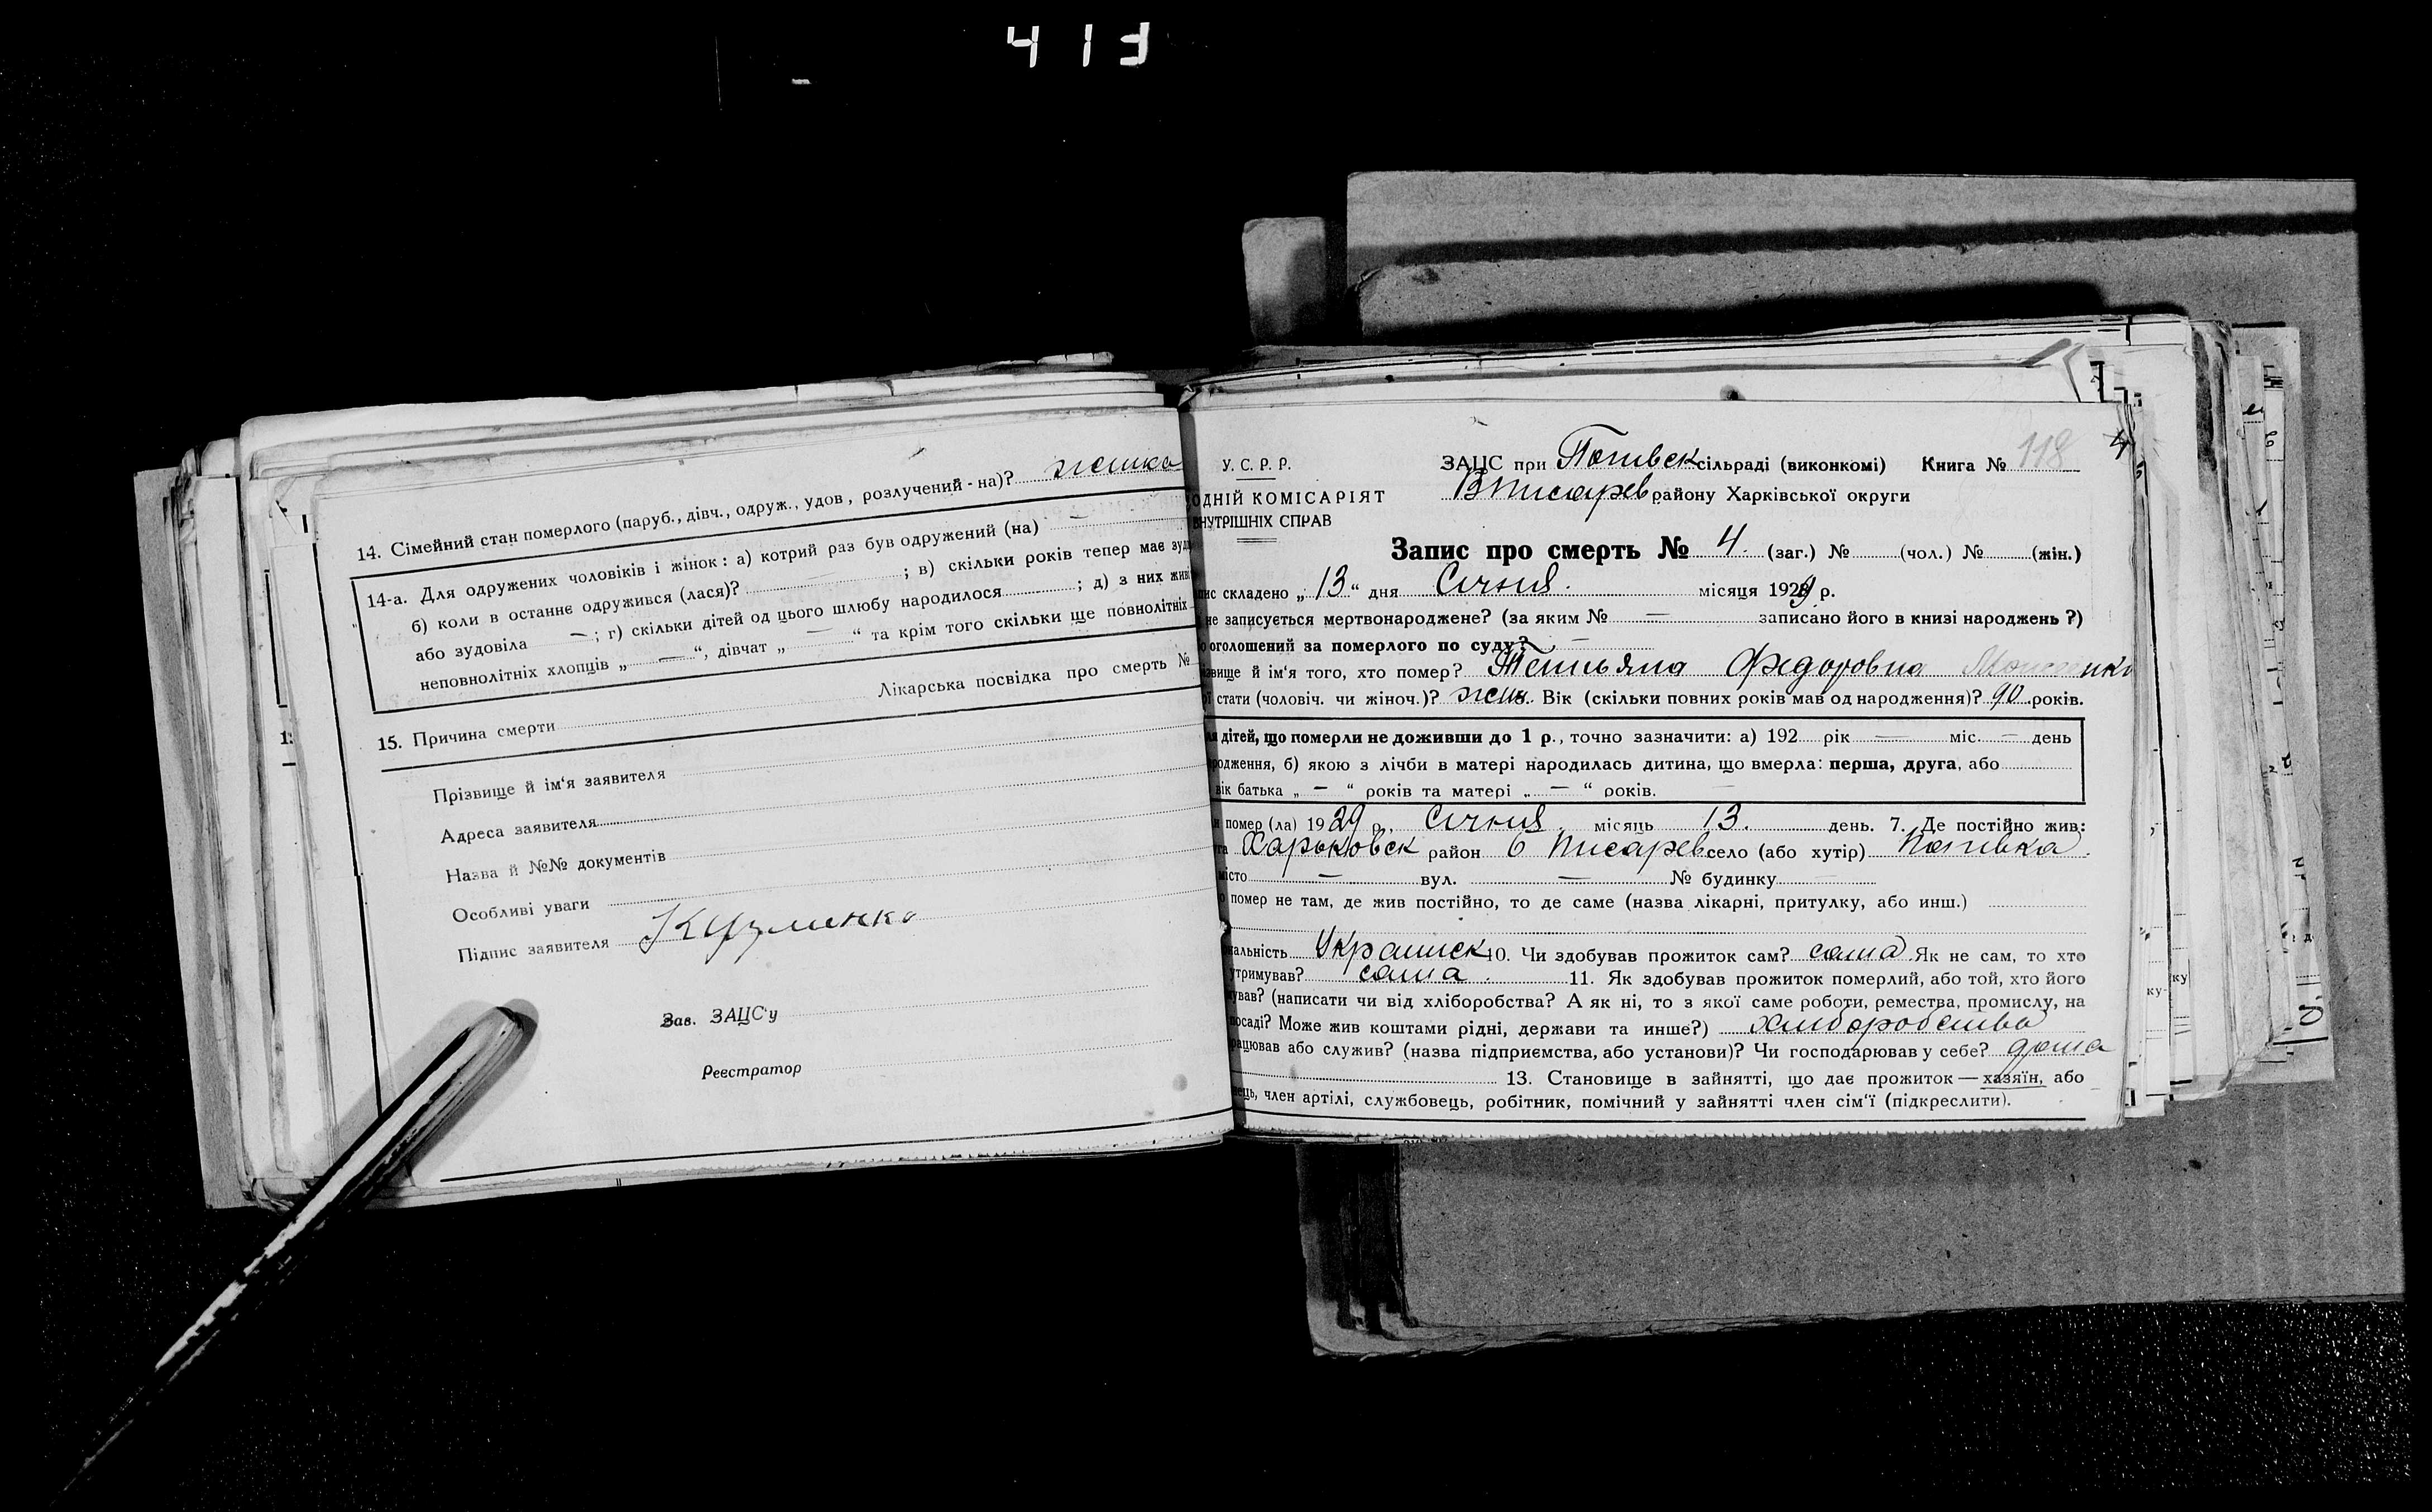 413
14. Сімейний стан померлого (паруб., дівч., одруж., удов., розлучений-на)?
14-а. Для одружених чоловіків і жінок: а) котрий раз був одружений (на) —
б) коли в останнє одружився (лася)? — ; в) скільки років тепер має
або зудовіла — ; г) скільки дітей од цього шлюбу народилося ; д) з них
неповнолітніх хлопців „ — “, дівчат „ — “ та крім того скільки ще повнолітніх
15. Причина смерти Лікарська посвідка про смерть №
Прізвище й ім'я заявителя
Адреса заявителя
Назва й №№ документів
Особливі уваги
Підпис заявителя Кузменко
Зав. ЗАЦС'у
Реєстратор
У. С. Р. Р.
ОДНІЙ КОМІСАРІЯТ
ВНУТРІШНІХ СПРАВ
ЗАЦС при Попивск сільраді (виконкомі) Книга № 118
Вписарев району Харківської округи
Запис про смерть № 4. (заг.) № (чол.) № (жін.)
складено „13“ дня Січня. місяця 1929 р.
не записується мертвонароджене? (за яким № — записано його в книзі народжень?)
оголошений за померлого по суду? —
звище й ім'я того, хто помер? Тетьяна Федоровна
стати (чоловіч. чи жіноч.)? жін. Вік (скільки повних років мав од народження)? 90 років.
дітей, що померли не доживши до 1 р., точно зазначити: а) 192 рік — міс. — день
родження, б) якою з лічби в матері народилась дитина, що вмерла: перша, друга, або
вік батька „ — “ років та матері „ — “ років.
помер (ла) 1929 р., Січня місяць 13. день. 7. Де постійно жив:
Харьковск район б Писарев село (або хутір) Попивка.
місто — вул. — № будинку
помер не там, де жив постійно, то де саме (назва лікарні, притулку, або инш.)
альність Украинск 10. Чи здобував прожиток сам? сама Як не сам, то хто
утримував? сама. 11. Як здобував прожиток померлий, або той, хто його
ував? (написати чи від хліборобства? А як ні, то з якої саме роботи, ремества, промислу, на
посаді? Може жив коштами рідні, держави та инше?) хлиборобства
рацював або служив? (назва підприємства, або установи)? Чи господарював у себе? дома
13. Становище в зайнятті, що дає прожиток — хазяїн, або
вець, член артілі, службовець, робітник, помічний у зайнятті член сім'ї (підкреслити).